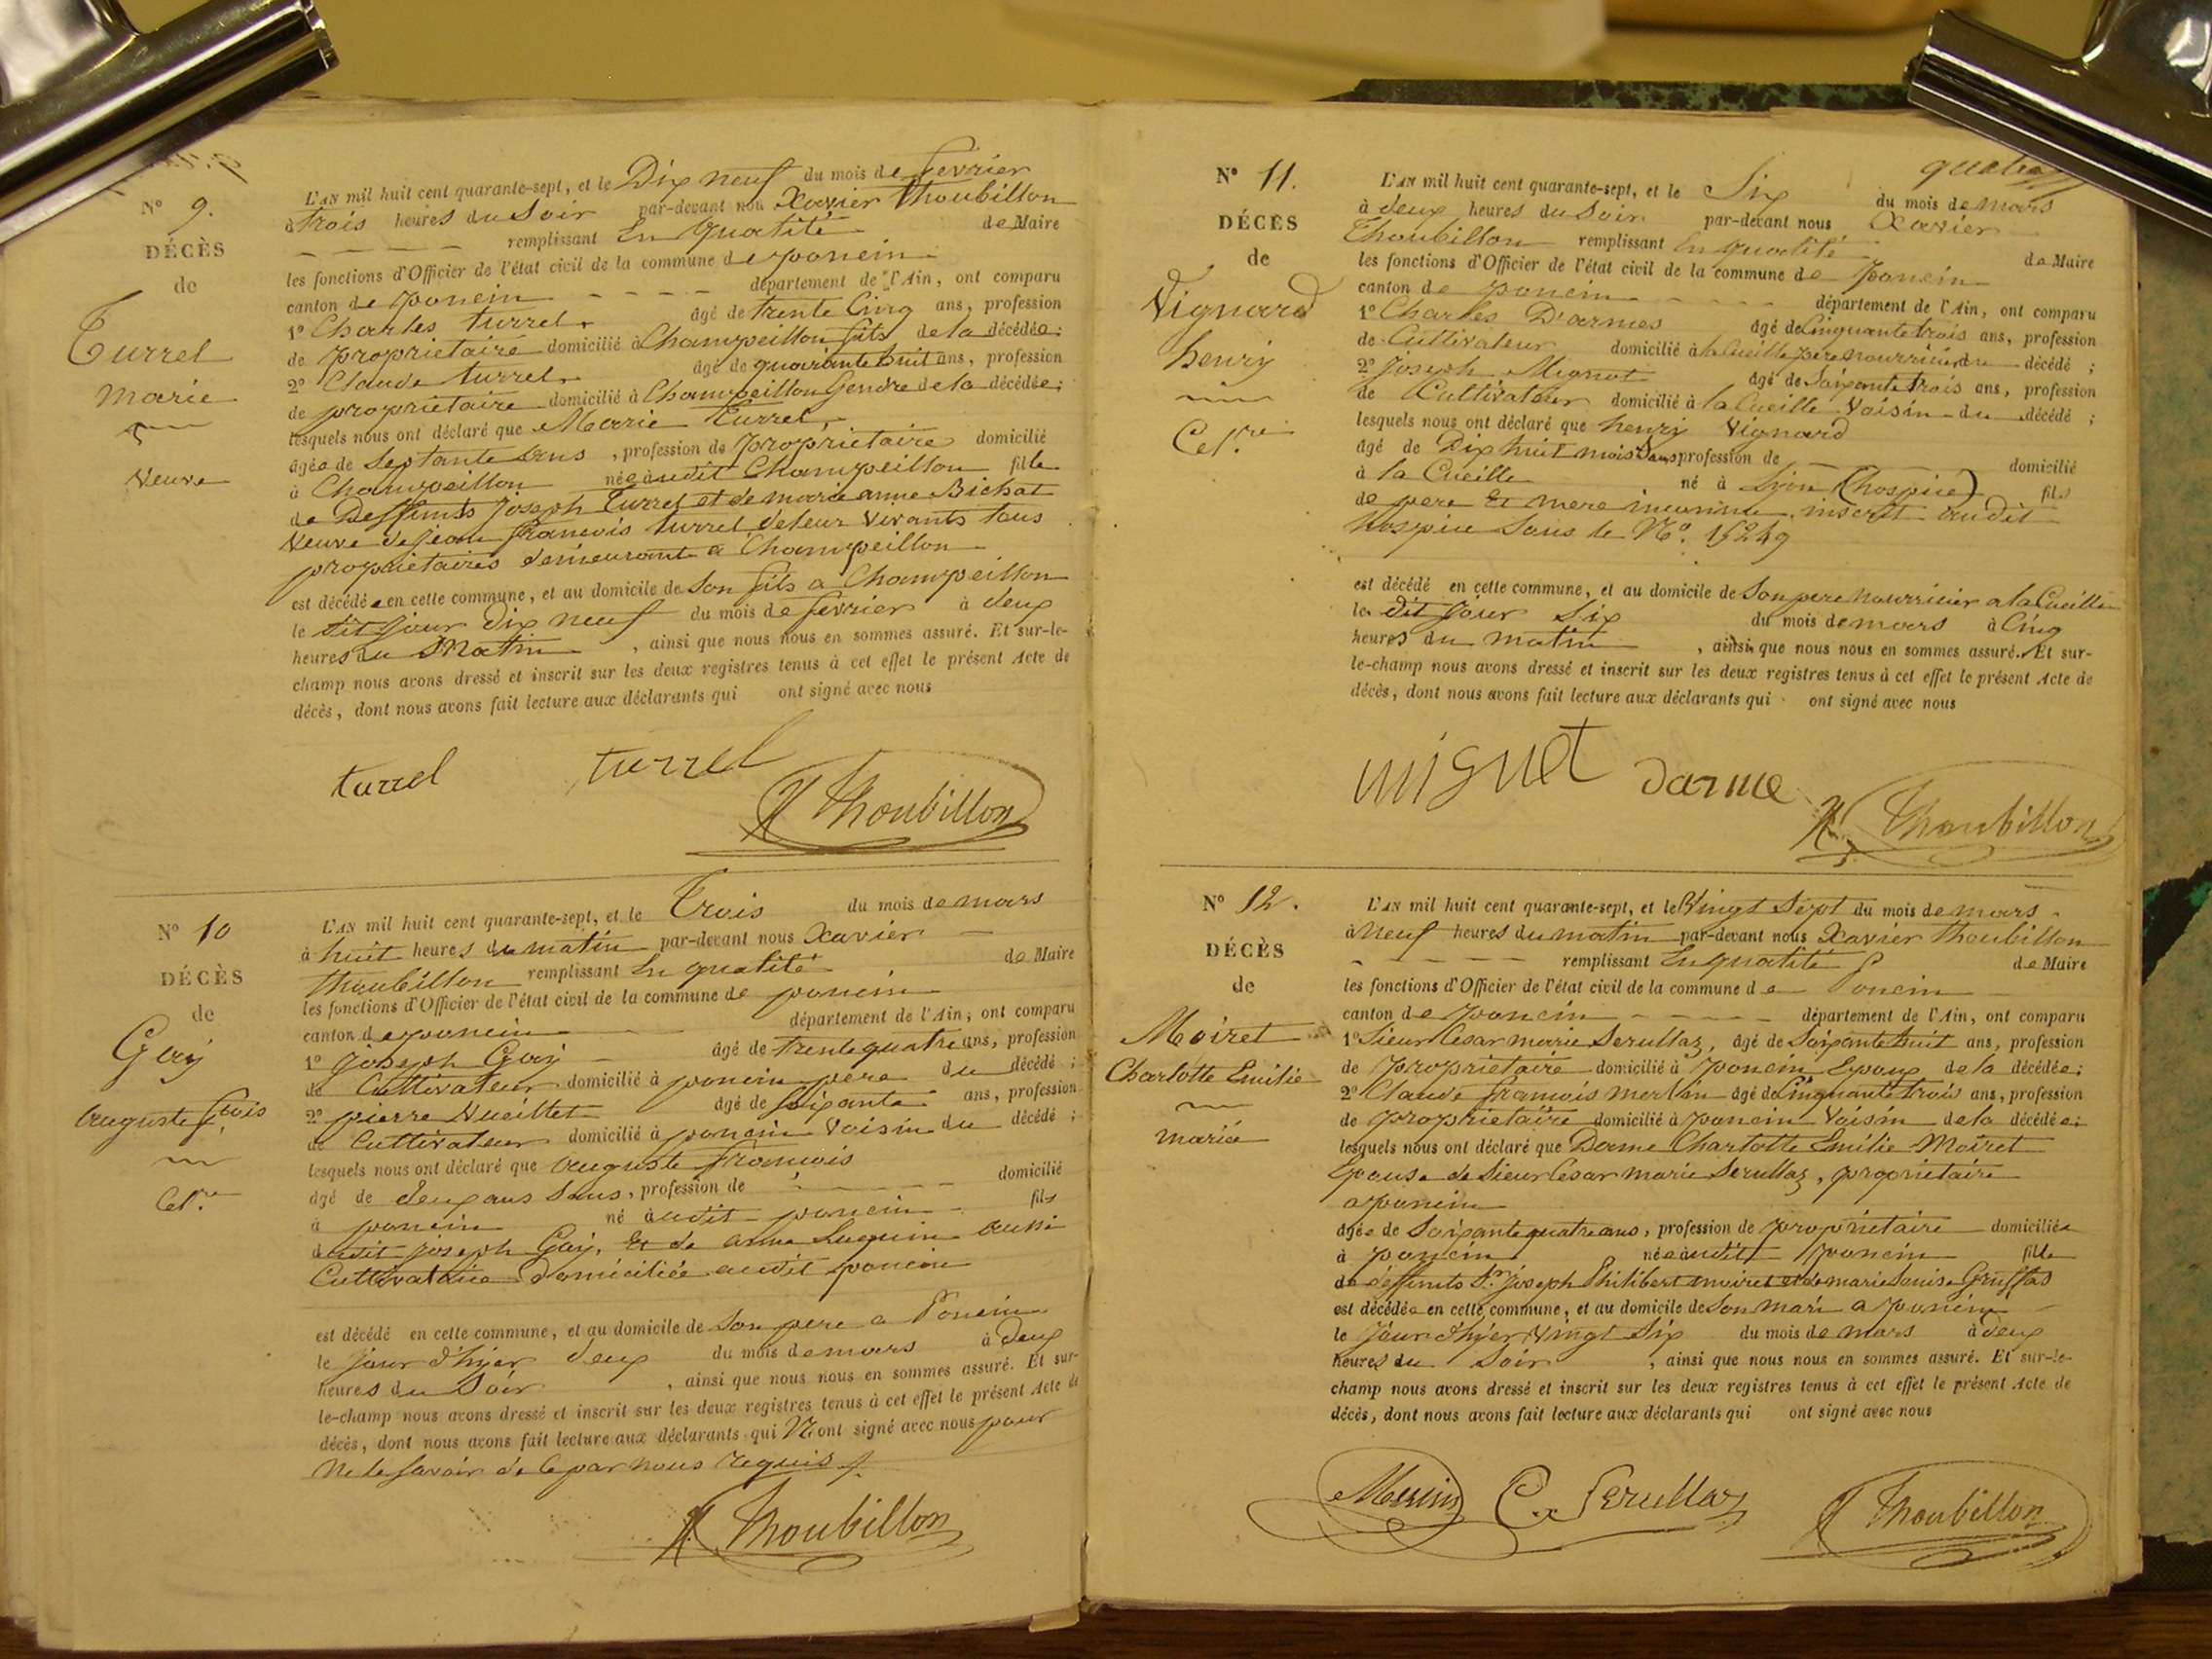 N° 9.
DÉCÈS
de
Turrel
Marie
Veuve
L'AN mil huit cent quarante-sept, et le Dix neuf du mois de fevrier
à trois heures du Soir par-devant nou Xavier Thoubillon
remplissant En qualité de Maire
les fonctions d'Officier de l'état civil de la commune de poncin
canton de poncin département de l'Ain, ont comparu
1° Charles turrel âgé de trente Cinq ans, profession
de propriétaire domicilié à Champeillon fils de la décédée;
2° Claude turrel âgé de quarante huit ans, profession
de propriétaire domicilié à Champeillon Gendre de la décédée;
lesquels nous ont déclaré que Marie turrel,
âgée de Septante ans, profession de propriétaire domicilié
à Champeillon née audit Champeillon fille
de Deffunts Joseph Turrel et de marie anne Bichat
Veuve de jean francois turrel de leur Vivants tous
propriétaires demeurant a Champeillon
est décédée en cette commune, et au domicile de Son fils a Champeillon
le dit jour Dix neuf du mois de fevrier à deux
heures du Matin, ainsi que nous nous en sommes assuré. Et sur-le-
champ nous avons dressé et inscrit sur les deux registres tenus à cet effet le présent Acte de
décès, dont nous avons fait lecture aux déclarants qui ont signé avec nous
turrel turrel
X Thoubillon
N° 10
DÉCÈS
de
Gay
auguste fcois
Cel.re
L'AN mil huit cent quarante-sept, et le Trois du mois de mars
à huit heures du matin par-devant nous Xavier
Thoubillon remplissant En qualité de Maire
les fonctions d'Officier de l'état civil de la commune de poncin
canton de poncin département de l'Ain, ont comparu
1° joseph Gay âgé de trente quatre ans, profession
de Cultivateur domicilié à poncin pere du décédé;
2° pierre Vueillet âgé de Soixante ans, profession
de Cultivateur domicilié à poncin Voisin du décédé;
lesquels nous ont déclaré que auguste francois
âgé de deux ans, profession de domicilié
à poncin né audit poncin fils
dudit joseph Gay, Et de anne aussi
Cultivatrice Domiciliée audit poncin
est décédé en cette commune, et au domicile de Son pere a Poncin
le jour d'hyer deux du mois de mars à Deux
heures du Soir, ainsi que nous nous en sommes assuré. Et sur-
le-champ nous avons dressé et inscrit sur les deux registres tenus à cet effet le présent Acte de
décès, dont nous avons fait lecture aux déclarants qui N'ont signé avec nous pour
Ne le Savoir de Ce par nous requis
X Thoubillon
N° 11.
DÉCÈS
de
Vignard
henry
Cel.re
L'AN mil huit cent quarante-sept, et le Six du mois de mars
à deux heures du Soir par-devant nous Xavier
Thoubillon remplissant En qualité de Maire
les fonctions d'Officier de l'état civil de la commune de Poncin
canton de poncin département de l'Ain, ont comparu
1° Charles D'armes âgé de Cinquante trois ans, profession
de Cultivateur domicilié à la Cueille pere nourricier du décédé;
2° Joseph Mignot âgé de Soixante trois ans, profession
de Cultivateur domicilié à la Cueille Voisin du décédé;
lesquels nous ont déclaré que henry Vignard
âgé de Dix huit mois profession de domicilié
à la Cueille né à Lyon (hospice) fils
de pere Et mere inconnue, inscrit audit
hospice Sous le N°. 15249
est décédé en cette commune, et au domicile de Son pere nourricier a la Cueille
le dit jour Six du mois de mars à Cinq
heures du matin, ainsi que nous nous en sommes assuré. Et sur-
le-champ nous avons dressé et inscrit sur les deux registres tenus à cet effet le présent Acte de
décès, dont nous avons fait lecture aux déclarants qui ont signé avec nous
miguet Darme
X Thoubillon
N° 12.
DÉCÈS
de
Moiret
Charlotte Emilie
mariée
L'AN mil huit cent quarante-sept, et le Vingt Sept du mois de mars
à neuf heures du matin par-devant nous Xavier Thoubillon
remplissant En qualité de Maire
les fonctions d'Officier de l'état civil de la commune de Poncin
canton de Poncin département de l'Ain, ont comparu
1° Sieur César marie Serullaz, âgé de Soixante huit ans, profession
de propriétaire domicilié à Poncin Epoux de la décédée;
2° Claude francois âgé de Cinquante trois ans, profession
de propriétaire domicilié à poncin Voisin de la décédée;
lesquels nous ont déclaré que Dame Charlotte Emilie Moiret
Epouse de Sieur César marie Serullaz, propriétaire
a poncin
âgée de Soixante quatre ans, profession de propriétaire domiciliée
à poncin née audit Poncin fille
de deffunts Sr. joseph Philibert moiret et de marie Louise Gruffas
est décédée en cette commune, et au domicile de Son mari a Poncin
le jour d'hyer Vingt Six du mois de mars à deux
heures du Soir, ainsi que nous nous en sommes assuré. Et sur-le-
champ nous avons dressé et inscrit sur les deux registres tenus à cet effet le présent Acte de
décès, dont nous avons fait lecture aux déclarants qui ont signé avec nous
C. Serullaz X Thoubillon